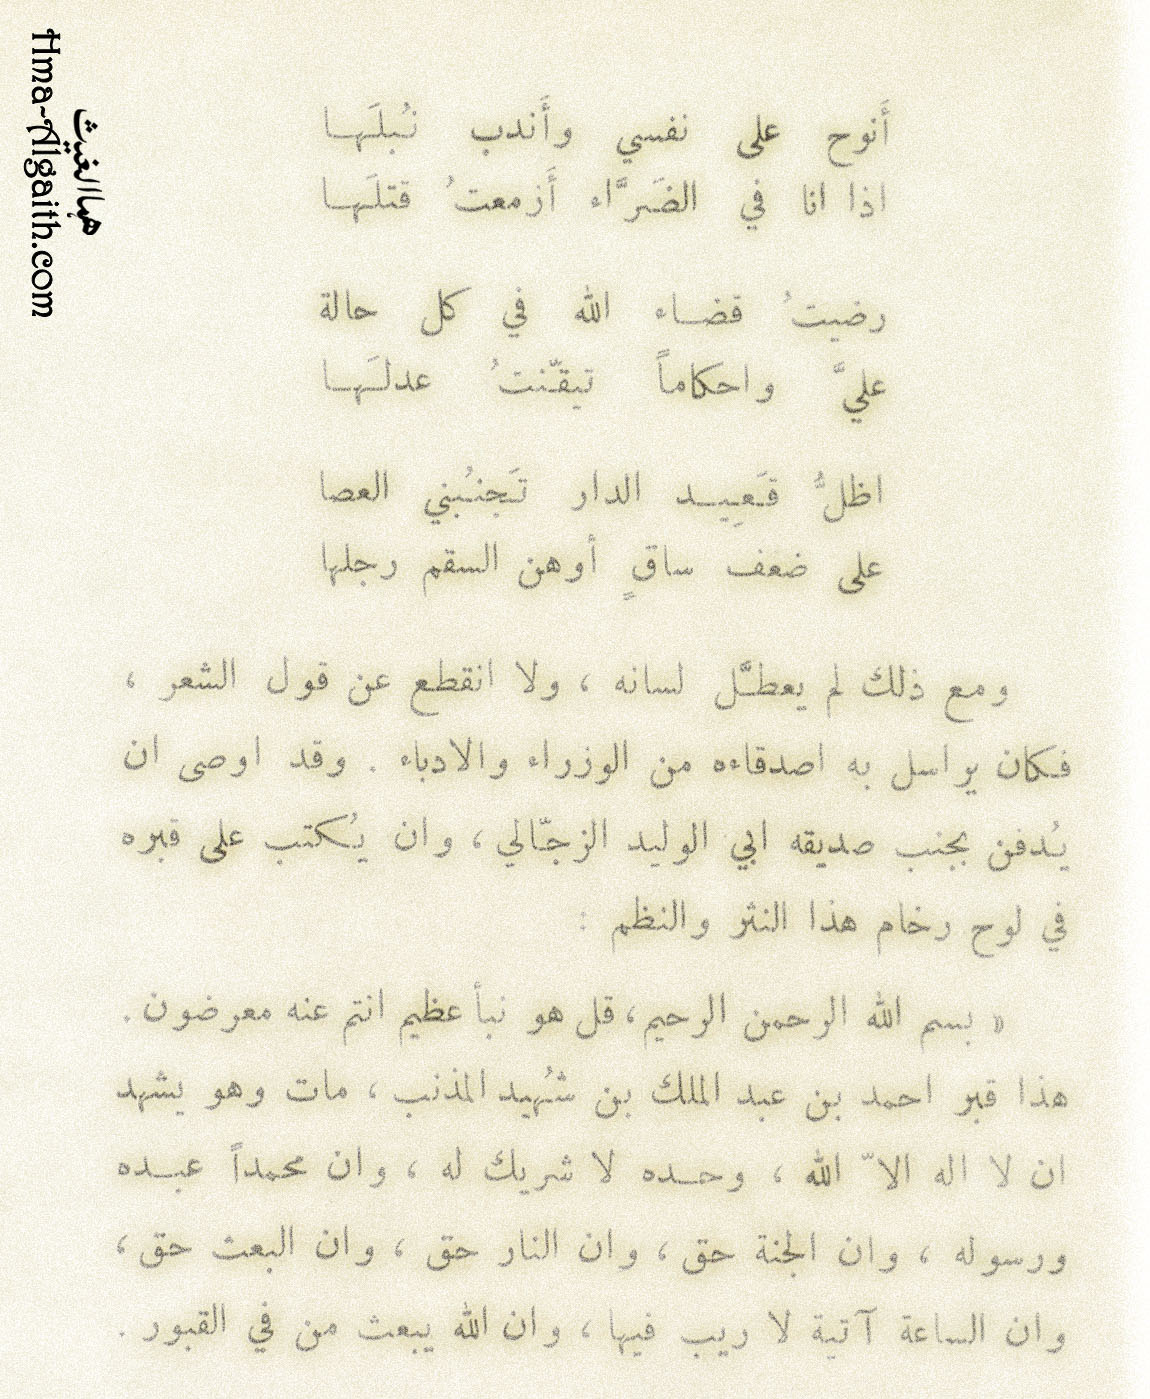 أَنوح على نفسي وأَندب نُبلَهـا
اذا انا في الضَرَّاء أَزمعتُ قتلَهـا
رضيتُ قضـاء الله في كل حالة
عليَّ واحكاماً تيقّنتُ عدلَهـا
اظلُّ قَعِيـد الدار تَجنُبني العصا
على ضعف ساقٍ أوهن السقم رجلها
ومع ذلك لم يعطـَّل لسانه ، ولا انقطع عن قول الشعر ،
فكان يراسل به اصدقاءه من الوزراء والادباء . وقد اوصى ان
يُدفن بجنب صديقه ابي الوليد الزجّالي ، وان يُكتب على قبره
في لوح رخام هذا النثر والنظم :
« بسم الله الرحمن الرحيم ، قل هو نبأ عظيم انتم عنه معرضون .
هذا قبر احمد بن عبد الملك بن شُهيد المذنب ، مات وهو يشهد
ان لا اله الاّ الله ، وحـده لا شريك له ، وان محمداً عبـده
ورسوله ، وان الجنة حق ، وان النار حق ، وان البعث حق ،
وان الساعة آتية لا ريب فيها ، وان الله يبعث من في القبور .
هبا الغيث
Hma-Algaith.com